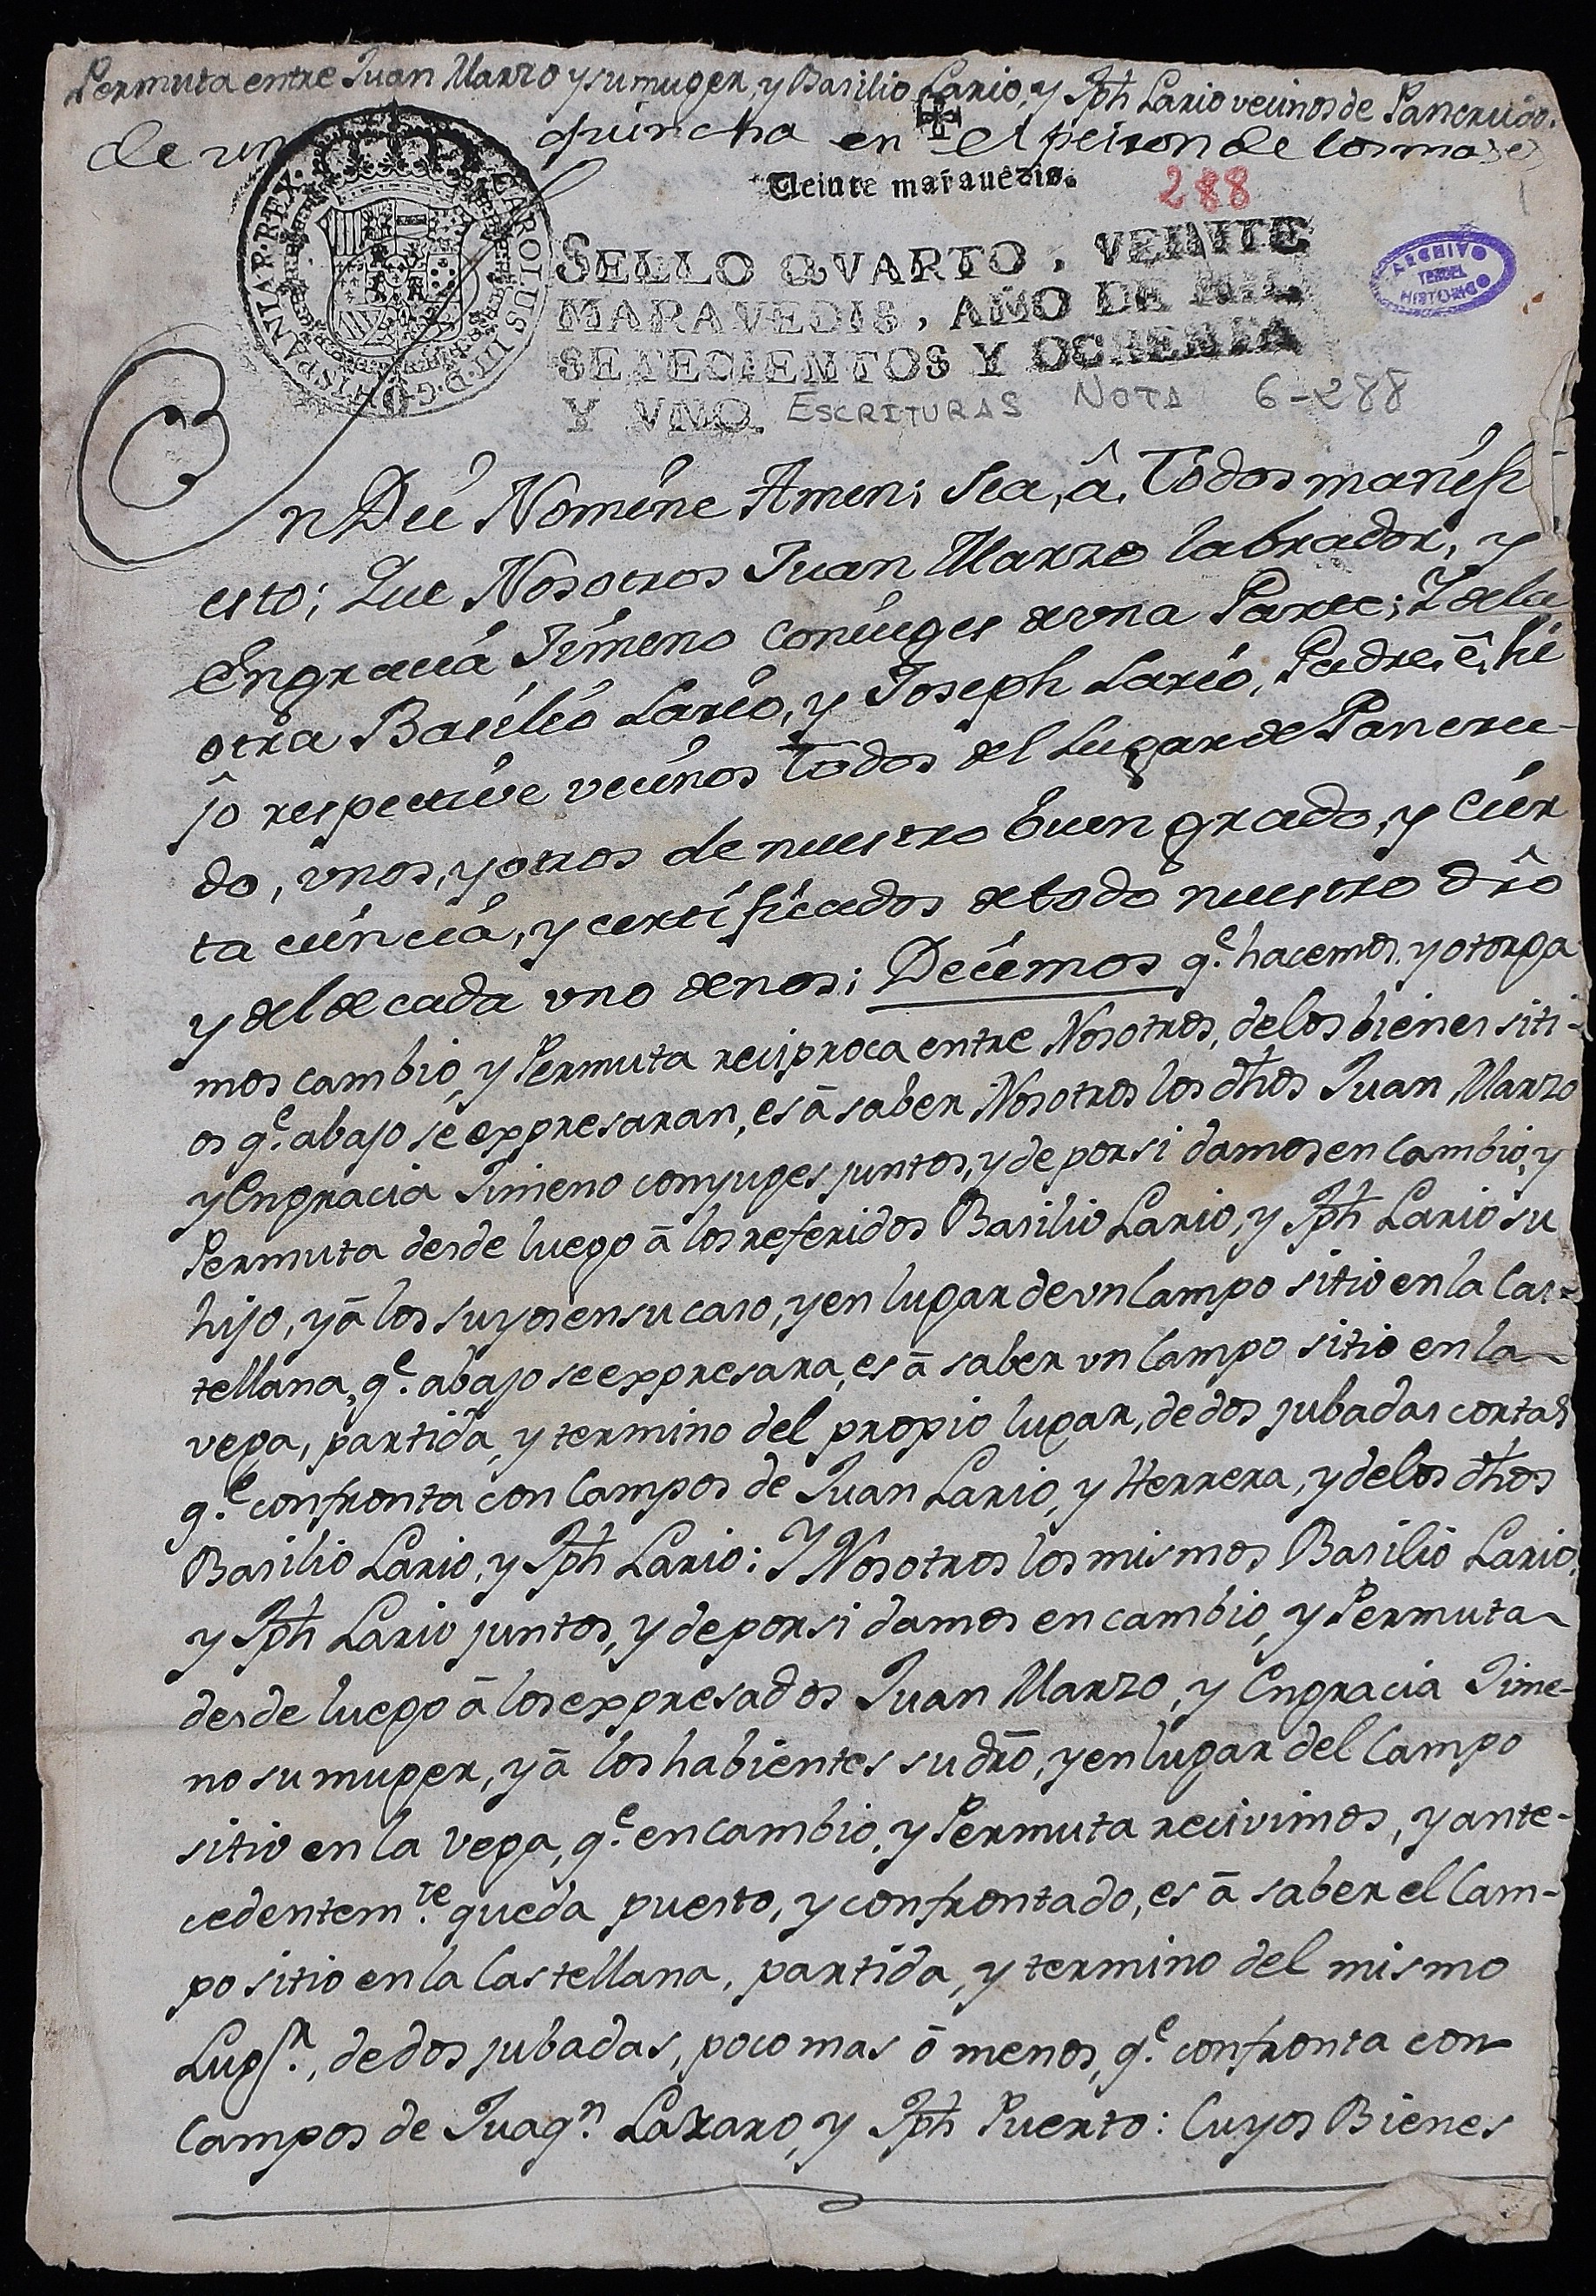 Permuta entre Juan Marzo y su muger, y Basilio Lario, y Jph Lario vecinos de Pancrudo.
de un quincha en el peiron de los
Veinte marauedis.
288
SELLO QVARTO, VEINTE
MARAVEDIS, AÑO DE MIL
SETECIENTOS Y OCHENTA
Y VNO.
ESCRITURAS NOTA 6-288
CAROLUS III D.G. HISPANIAR. REX
En Dei Nomine Amen; Sea, â, Todos manifi
esto; Que Nosotros Juan Marzo labrador, y
Engracia Jimeno coniuges de vna Parte; Y de la
otra Basilio Lario, y Joseph Lario, Padre, ê, hi
jo respective vecinos Todos del Lugar de Pancru-
do, vnos, y otros de nuestro buen grado, y cier
ta ciencia, y certificados de todo nuestro dro
y del de cada vno de nos; Decimos q.e hacemos, y otorga
mos cambio, y Permuta reciproca entre Nosotros, de los bienes siti-
os q.e abajo se expresaran, es â saber Nosotros los dhos Juan Marzo
y Engracia Jimeno conyuges juntos, y de por si damos en Cambio, y
Permuta desde luego â los referidos Basilio Lario, y Jph Lario su
hijo, y â los suyos en su caso, y en lugar de vn Campo sitio en la Cas-
tellana, q.e abajo se expresara, es â saber vn Campo sitio en la
vega, partida, y termino del propio lugar, de dos jubadas cortas
q.e confronta con Campos de Juan Lario, y Herrera, y de los dhos
Basilio Lario, y Jph Lario: Y Nosotros los mismos Basilio Lario,
y Jph Lario juntos, y de por si damos en cambio, y Permuta
desde luego â los expresados Juan Marzo, y Engracia Jime-
no su muger, y â los habientes su dro, y en lugar del Campo
sitio en la vega, q.e en cambio, y Permuta recivimos, y ante-
cedentem.te queda puesto, y confrontado, es â saber el Cam-
po sitio en la Castellana, partida, y termino del mismo
Lug.r, de dos jubadas, poco mas ô menos, q.e confronta con
Campos de Juaq.n Lazaro, y Jph Puerto: Cuyos Bienes